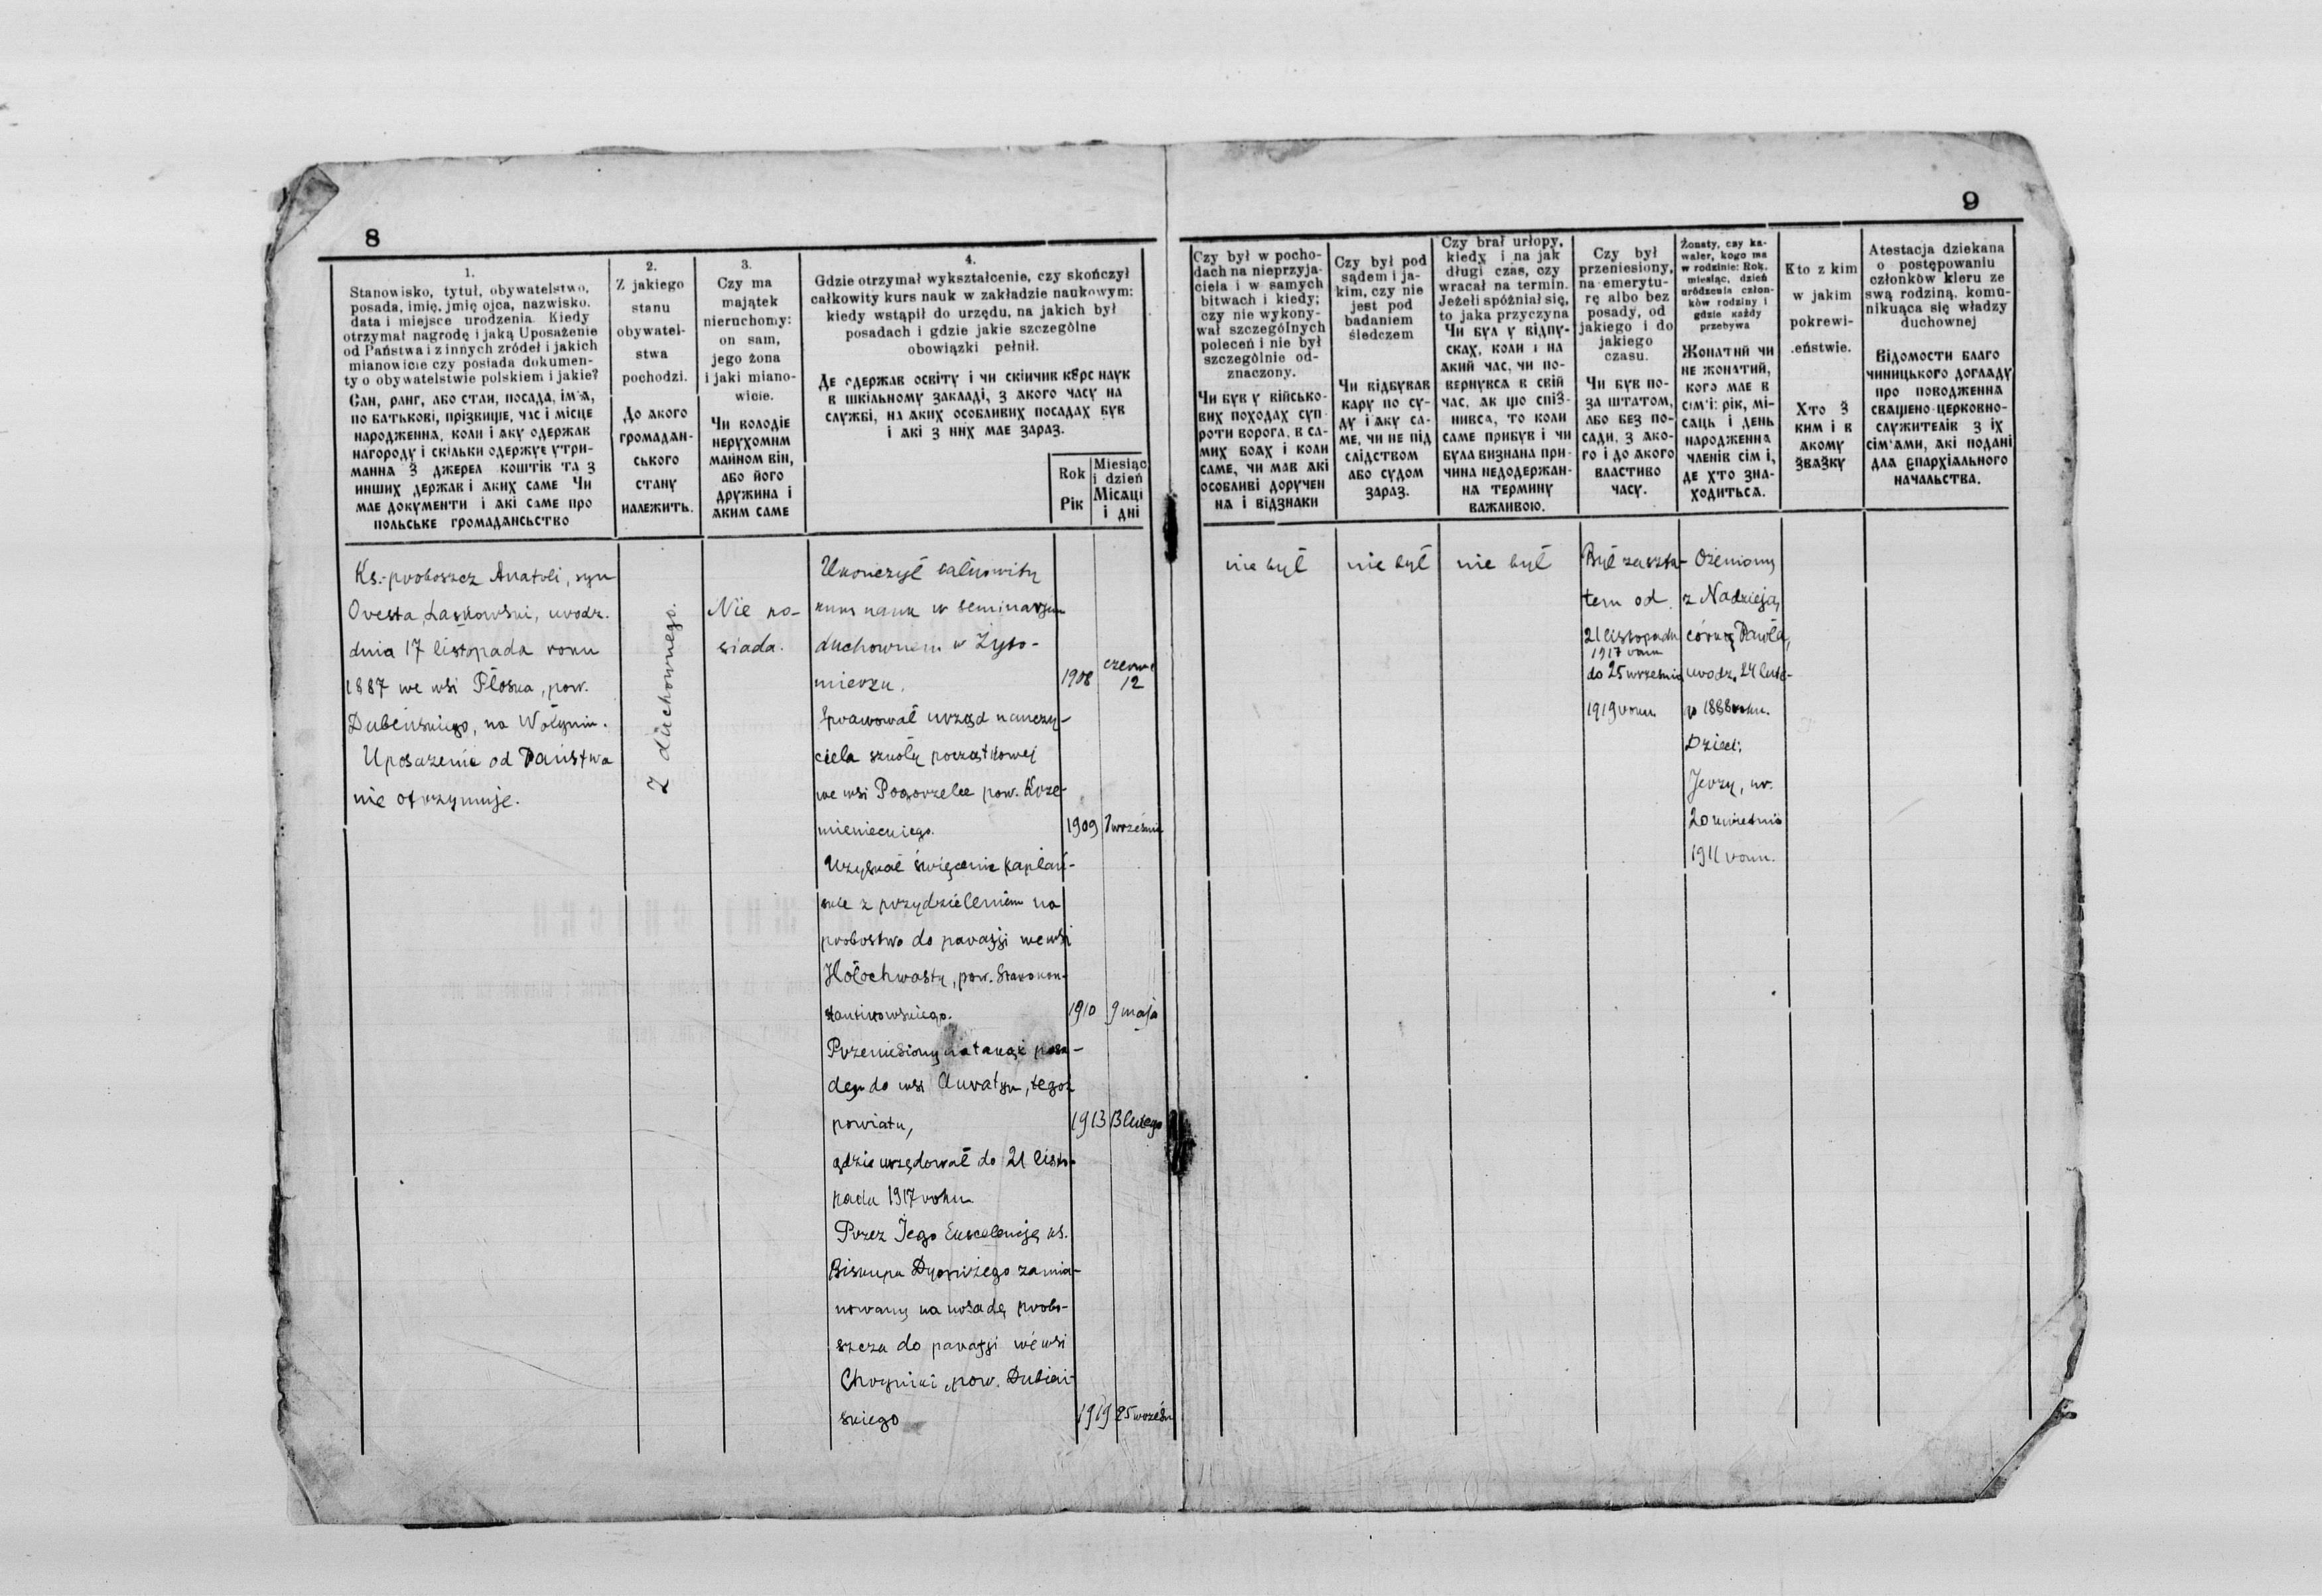 8
1.
Stanowisko, tytuł, obywatelstwo,
posada, imię, jmię ojca, nazwisko.
data i miejsce urodzenia. Kiedy
otrzymał nagrodę i jaką Uposażenie
od Państwa i z innych źródeł i jakich
mianowicie czy posiada dokumen-
ty o obywatelstwie polskiem i jakie?
Сан, ранг, або стан, посада, ім'я,
по батькові, прізвище, час і місце
народження, коли і яку одержав
нагороду і скільки одержує утри-
мання з джерел коштів та з
инших держав і яких саме Чи
має документи і які саме про
польське громадянсьство
2.
Z jakiego
stanu
obywatel-
stwa
pochodzi.
До якого
громадян-
ського
стану
належить.
3.
Czy ma
majątek
nieruchomy:
on sam,
jego żona
i jaki miano-
wicie.
Чи володіє
нерухомим
майном він,
або його
дружина і
яким саме
4.
Gdzie otrzymał wykształcenie, czy skończył
całkowity kurs nauk w zakładzie naukowym:
kiedy wstąpił do urzędu, na jakich był
posadach i gdzie jakie szczególne
obowiązki pełnił.
Де одержав освіту і чи скінчив курс наук
в шкільному закладі, з якого часу на
службі, на яких особливих посадах був
і які з них має зараз.
Rok
Рік
Miesiąc
i dzień
Місяці
і дні
Ks.-proboszcz Anatoli, syn
Oresta, Laskowski, urodz.
dnia 17 listopada roku
1887 we wsi Płoska, pow.
Dubeńskiego, na Wołyniu.
Uposażenie od Państwa
nie otrzymuje.
Z duchownego.
Nie po-
siada.
Ukończył całkowity
kurs nauk w seminarjum
duchownem w Żyto-
mierzu. 1908 czerwc 12
Sprawował urząd nauczy-
ciela szkoły początkowej
we wsi Pogorzelce pow. Krze-
mienieckiego. 1909 7 września
Uzyskał święcenie kapłań-
skie z przydzieleniem na
probostwo do parafji we wsi
Hołochwasty, pow. Starokon-
stantynowskiego. 1910 9 maja
Przeniesiony na takąż posa-
dę do wsi Auratyn, tegoż
powiatu, 1913 13 lutego
gdzie urzędował do 21 listo-
pada 1917 roku
Przez Jego Ekscelencję ks.
Biskupa Dyonizego zamia-
nowany na posadę probo-
szcza do parafji we wsi
Chorupiki, pow. Dubień-
skiego 1919 25 wrześn
9
Czy był w pocho-
dach na nieprzyja-
ciela i w samych
bitwach i kiedy;
czy nie wykony-
wał szczególnych
poleceń i nie był
szczególnie od-
znaczony.
Чи був у військо-
вих походах суп-
роти ворога, в са-
мих боях і коли
саме, чи мав які
особливі доручен
ня і відзнаки
Czy był pod
sądem i ja-
kim, czy nie
jest pod
badaniem
śledczem
Чи відбував
кару по су-
ду і яку са-
ме, чи не під
слідством
або судом
зараз.
Czy brał urłopy,
kiedy i na jak
długi czas, czy
wracał na termin.
Jeżeli spóźniał się,
to jaka przyczyna
Чи був у відпу-
сках, коли і на
який час, чи по-
вернувся в свій
час, як що спіз-
нився, то коли
саме прибув і чи
була визнана при-
чина недодержан-
ня терміну
важливою.
Czy był
przeniesiony,
na emerytu-
rę albo bez
posady, od
jakiego i do
jakiego
czasu.
Чи був по-
за штатом,
або без по-
сади, з яко-
го і до якого
властиво
часу.
Żonaty, czy ka-
waler, kogo ma
w rodzinie: Rok,
miesiąc, dzień
urodzenia człon-
ków rodziny i
gdzie każdy
przebywa
Жонатий чи
не жонатий,
кого має в
сім'ї: рік, мі-
саць і день
народження
членів сім і,
де хто зна-
ходиться.
Kto z kim
w jakim
pokrewi-
.eństwie.
Хто з
ким і в
якому
звязку
Atestacja dziekana
o postępowaniu
członków kleru ze
swą rodziną, komu-
nikująca się władzy
duchownej
Відомости благо
чиницького догляду
про поводження
священо-церковно-
служителів з їх
сім'ями, які подані
для єпархіяльного
начальства.
nie był
nie był
nie był
Był zaszta-
tem od
21 listopada
1917 roku
do 25 września
1919 roku
Ożeniony
z Nadzieją,
córką Pawła,
urodz. 24 lute-
go 1888 roku.
Dzieci:
Jerzy, ur.
20 kwietnia
1911 roku.